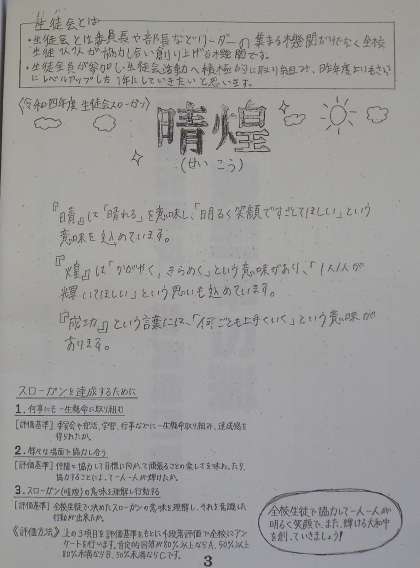 生徒会とは
・生徒会とは委員長や部長などリーダーの集まる機関だけでなく全校
生徒1人1人が協力し合い創り上げる機関です。
・生徒全員が参加し、生徒会活動へ積極的に取り組み、昨年度よりもさらに
にレベルアップした1年にしていきたいと思います。
〈令和四年度 生徒会スローガン〉
晴煌
(せいこう)
『晴』は「晴れる」を意味し、「明るく笑顔ですごしてほしい」という
意味を込めています。
『煌』は「かがやく、きらめく」という意味があり、「1人1人が
輝いてほしい」という思いも込めています。
『成功』という言葉には、「何ごとも上手くいく」という意味が
あります。
スローガンを達成するために
1.何事にも一生懸命に取り組む
[評価基準] 委員会や部活、学習、行事などに一生懸命取り組み、達成感を
得られたか。
2.様々な場面で協力し合う
[評価基準] 仲間と協力して目標に向かって頑張ることの楽しさを味わったり、
協力することによって一人一人が輝けたか。
3.スローガン(晴煌)の意味を理解し行動する
[評価基準] 全校生徒で決めたスローガンの意味を理解し、それを意識した
行動が出来たか。
《評価方法》 上の3項目を評価基準をもとに4段階評価で全校にアン
ケートを行います。肯定的回答が80%以上ならA、50%以上
80%未満ならB、50%未満ならCです。
全校生徒で協力して一人一人が
明るく笑顔で、また、輝ける大和中
を創っていきましょう!
3